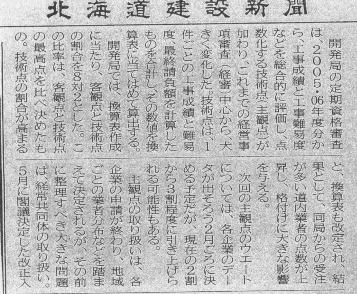 北海道建設新聞
開発局の定期資格審査
は、2005・06年度分か
ら、工事成績と工事難易度
などを総合的に評価し、点
数化する技術点(主観点)が
加わり、これまでの経営事
項審査(経審)中心から、大
きく変化した。技術点は、1
件ごとの工事成績と難易
度、最終請負額を計算した
ものを合計し、その数値を換
算表に当てはめて算出する。
開発局では、換算表作成
に当たり、客観点と技術点
の割合を8対2とした。こ
の比率は、客観点と技術点
の最高点を比べ決めたも
の。技術点の割合が高まる
と、換算表も改定され、結
果として、同局からの受注
が多い道内業者の点数が上
昇し、格付けに大きな影響
を与える。
次回の主観点のウエート
については、各企業のデー
タが出そろう2月ごろに決
める予定だが、現在の2割
から3割程度に引き上げら
れる可能性もある。
主観点の取り扱いは、各
企業の申請が終わり、地域
ごとの業者分布などを踏ま
えて決定されるが、その前
に整理すべき大きな問題
は、経常共同体の取り扱い。
5月に閣議決定した改正入